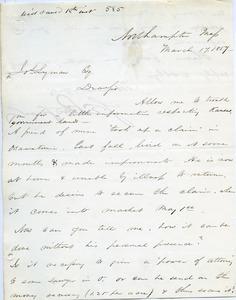 585
Northampton Mass
March 17, 1857
J. Lyman Esq
Dear Sir
Allow me to trouble
you for a little information respecting Kansas
Government lands. —
A friend of mine took up a claim in
Osawatomie last fall, lived on it some
months & made improvements. He is now
at home & unable by illness to return,
but he desires to secure the claim, when
it comes into market May 1st
Now can you tell me, how it can be
done without his personal presence?
Is it necessary to give a power of attorney
to some lawyer in O. or can he send on the
money necessary (1.25 per acre) & thus secure it?